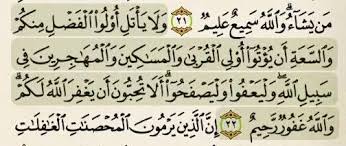 مَن يَشَآءُ ۗ وَٱللَّهُ سَمِيعٌ عَلِيمٌ ٢١ وَلَا يَأْتَلِ أُو۟لُوا۟ ٱلْفَضْلِ مِنكُمْ
وَٱلسَّعَةِ أَن يُؤْتُوٓا۟ أُو۟لِى ٱلْقُرْبَىٰ وَٱلْمَسَٰكِينَ وَٱلْمُهَٰجِرِينَ فِى
سَبِيلِ ٱللَّهِ ۖ وَلْيَعْفُوا۟ وَلْيَصْفَحُوٓا۟ ۗ أَلَا تُحِبُّونَ أَن يَغْفِرَ ٱللَّهُ لَكُمْ ۗ
وَٱللَّهُ غَفُورٌ رَّحِيمٌ ٢٢ إِنَّ ٱلَّذِينَ يَرْمُونَ ٱلْمُحْصَنَٰتِ ٱلْغَٰفِلَٰتِ